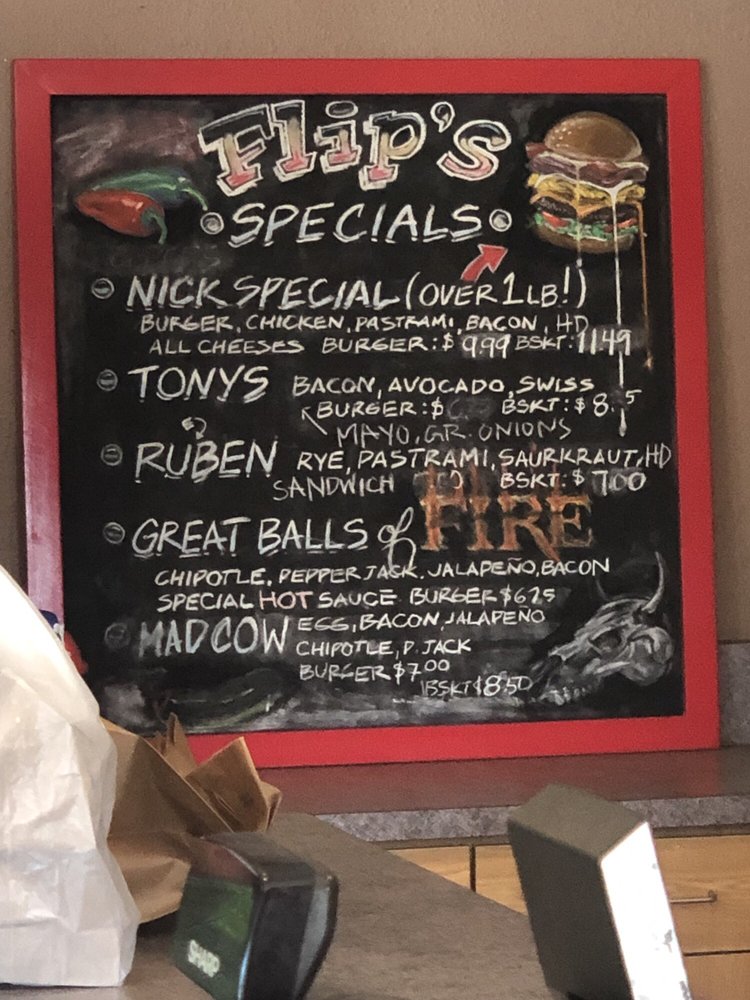 Flip's
SPECIALS
NICK SPECIAL (OVER 1 LB!)
BURGER, CHICKEN, PASTRAMI, BACON, HD
ALL CHEESES BURGER: $ 9.99 BSKT: 11.49
TONYS BACON, AVOCADO, SWISS
BURGER: $ BSKT: $ 8.
MAYO, GR. ONIONS
RUBEN RYE, PASTRAMI, SAURKRAUT, HD
SANDWICH BSKT: $ 7.00
GREAT BALLS of FIRE
CHIPOTLE, PEPPER JACK, JALAPEÑO, BACON
SPECIAL HOT SAUCE BURGER $6.25
MAD COW EGG, BACON, JALAPEÑO
CHIPOTLE, P. JACK
BURGER $7.00
BSKT $8.50
SHARP